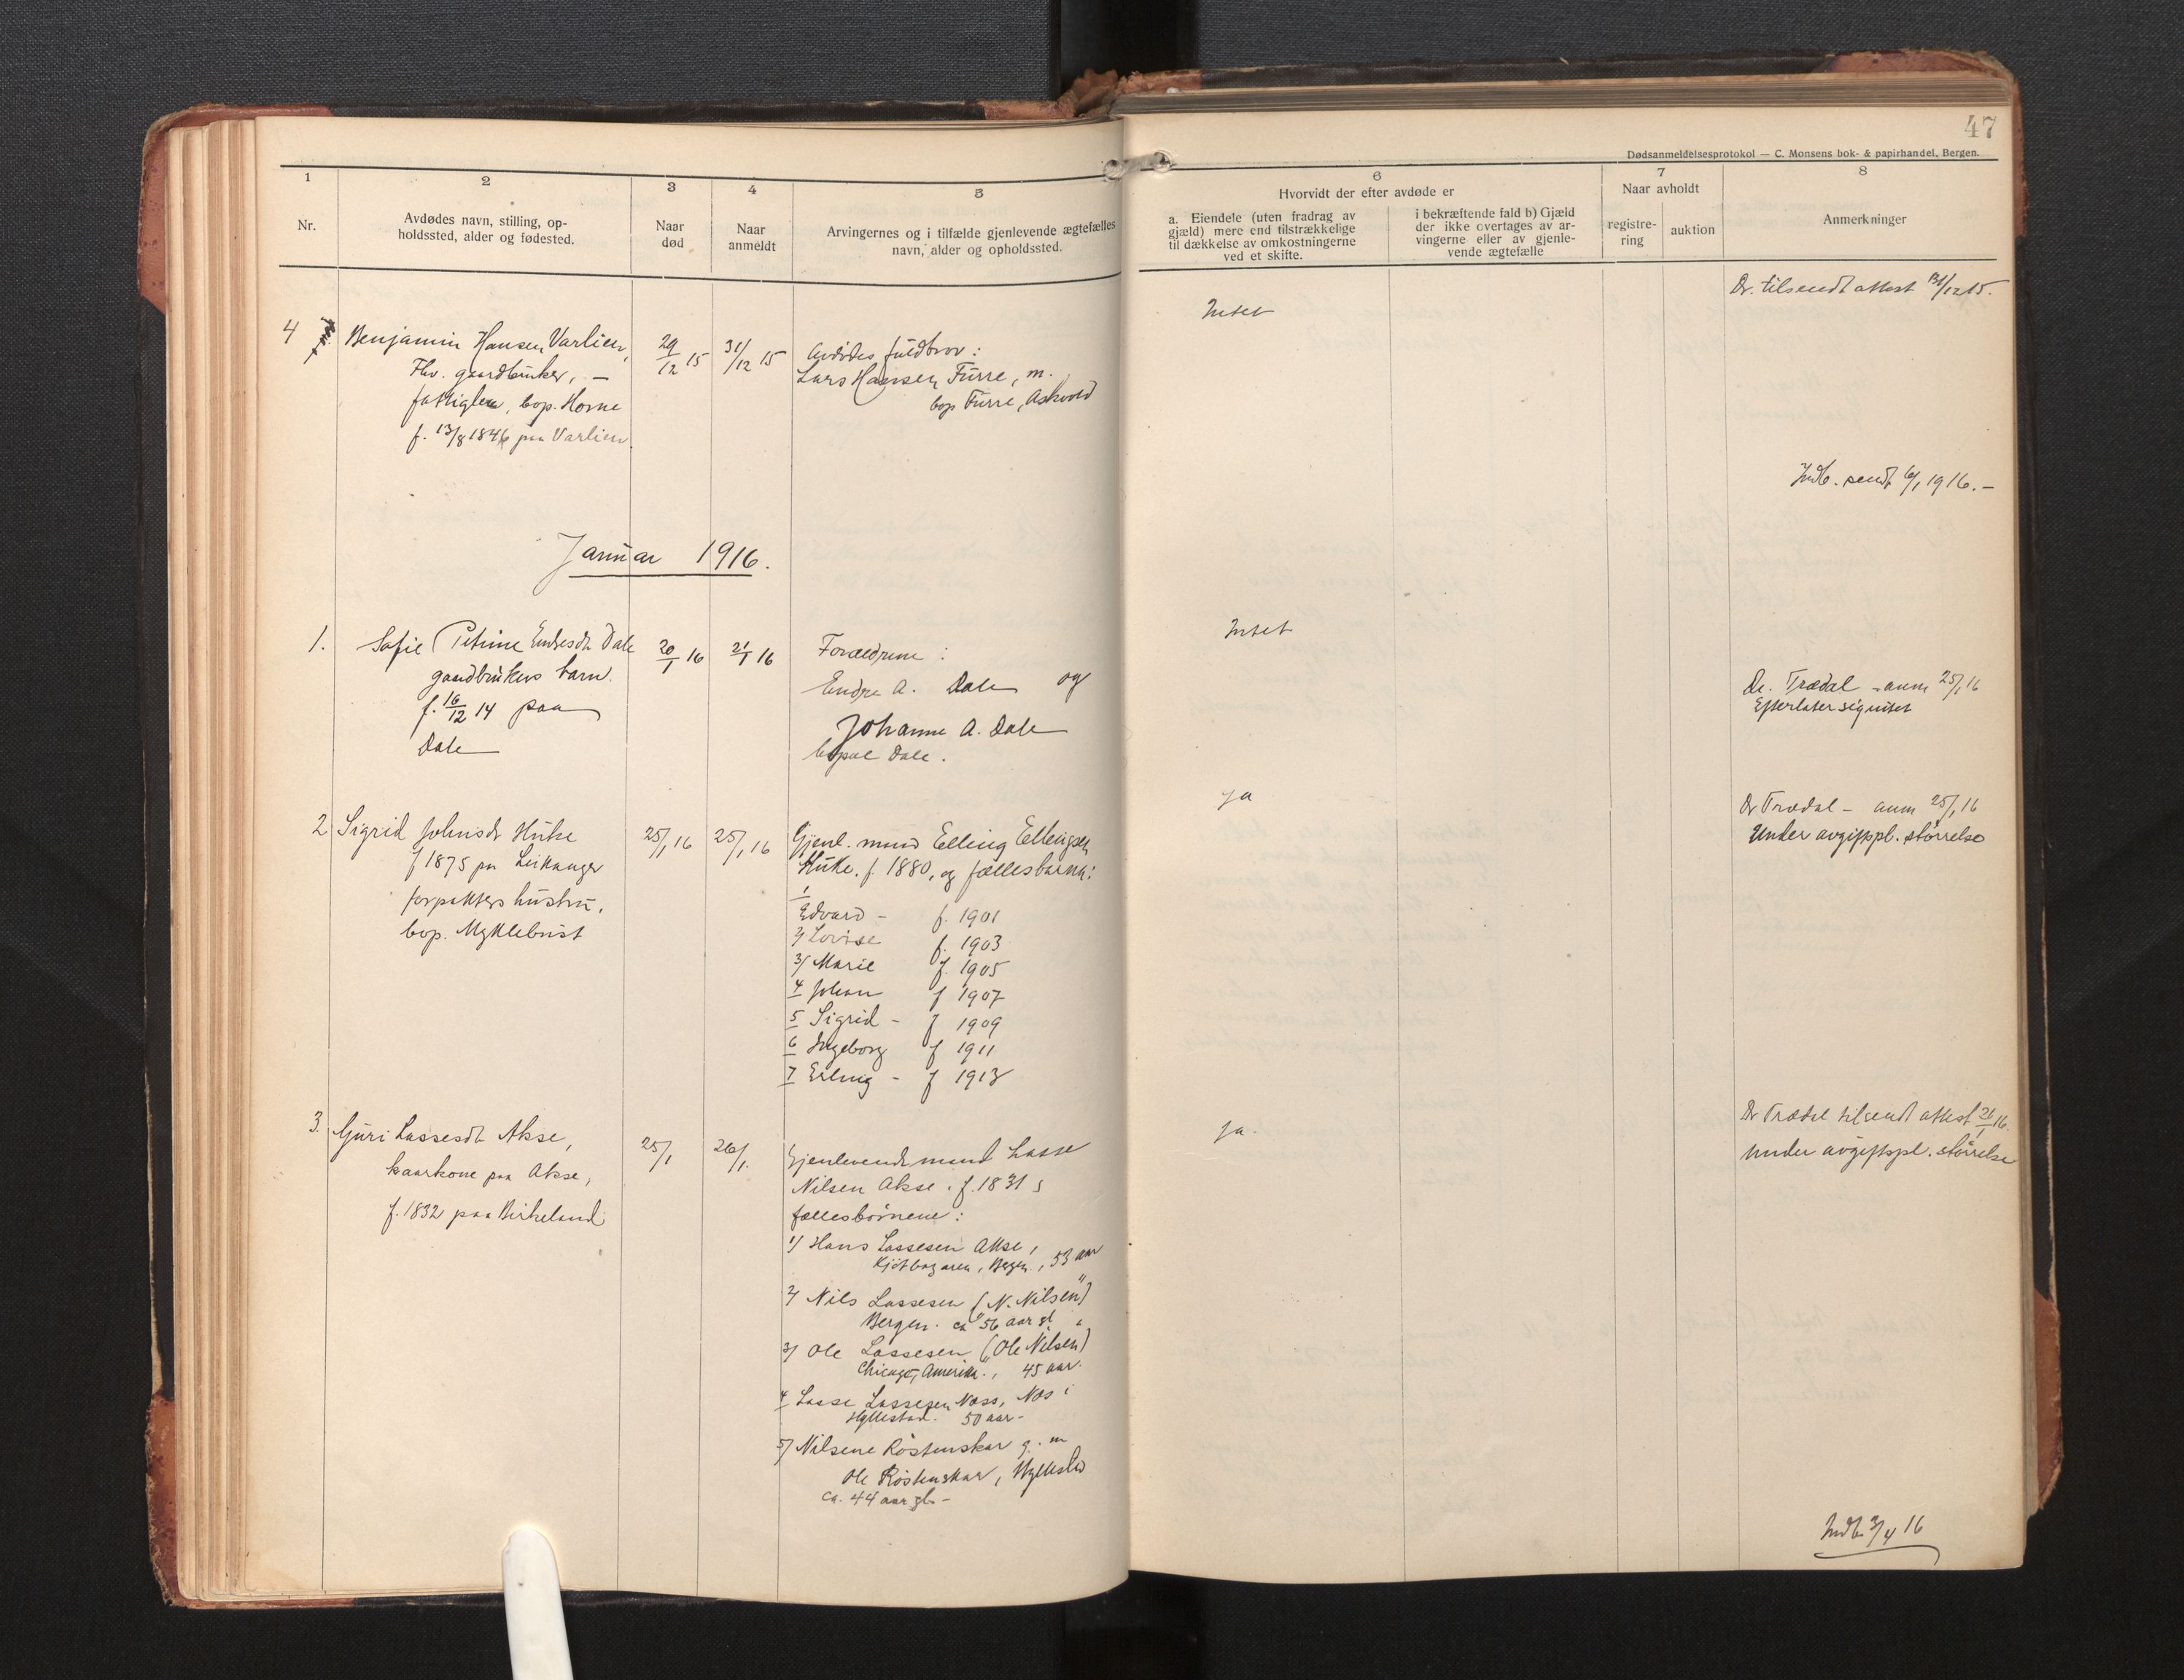 47
Dødsanmeldelsesprotokol — C. Monsens bok- & papirhandel, Bergen.
1
Nr.
2
Avdødes navn, stilling, op-
holdssted, alder og fødested.
3
Naar
død
4
Naar
anmeldt
5
Arvingernes og i tilfælde gjenlevende ægtefælles
navn, alder og opholdssted.
6
Hvorvidt der efter avdøde er
a. Eiendele (uten fradrag av
gjæld) mere end tilstrækkelige
til dækkelse av omkostningerne
ved et skifte.
i bekræftende fald b) Gjæld
der ikke overtages av ar-
vingerne eller av gjenle-
vende ægtefælle
7
Naar avholdt
registre-
ring
auktion
8
Anmerkninger
4
Benjamin Hansen Varlien,
Fhv. gaardbruker, —
fattiglem, bop. Horne
f. 13/8 1846 paa Varlien
29/12 15
31/12 15
Avdødes fuldbror:
Lars Hansen Furre, m.
bop Furre, Askvold
Intet
Dr. tilsendt attest 31/12 15.
Indb. sendt 6/1 1916. —
Januar 1916.
1.
Sofie Petrine Endresdt Dale
gaardbrukers barn.
f. 16/12 14 paa
Dale
20/1 16
21/1 16
Forældrene:
Endre A. Dale og
Johanne A. Dale
bopæl Dale.
Intet
Dr. Trædal - anm 25/1 16
Efterlater sig intet
2
Sigrid Johnsdt Huke
f 1875 pa Leikanger
forpakters hustru,
bop. Myklebust
25/1 16
25/1 16
Gjenl. mand Elling Ellingsen
Huke. f. 1880, og fællesbarna:
1/ Edvard - f. 1901
2/ Lovise f. 1903
3/ Marie f. 1905
4 Johan f 1907
5 Sigrid - f 1909
6 Ingeborg f 1911
7 Erling - f 1913
ja
Dr Trædal - anm 25/1 16
Under avgiftspl. størrelse
3.
Guri Lassesdt Akse,
kaarkone paa Akse,
f. 1832 paa Birkeland
25/1
26/1.
Gjenlevende mand Lasse
Nilsen Akse. f. 1831 s
fællesbørnene:
1/ Hans Lassesen Akse,
Bergen, 53 aar
2/ Nils Lassesen (N. Nilsen)
Bergen. ca 56 aar gl
3/ Ole Lassesen (Ole Nilsen)
Chicago, Amerika., 45 aar.
4 Lasse Lassesen Næss, Næs i
Hyllestad. 50 aar -
5/ Nilsene Røstenskar g. m
Ole Røstenskar, Hyllestad
ca. 44 aar gl. -
ja.
Dr Trædal tilsendt attest 26/1 16.
Under avgiftspl. størrelse
Indb. 3/4 16